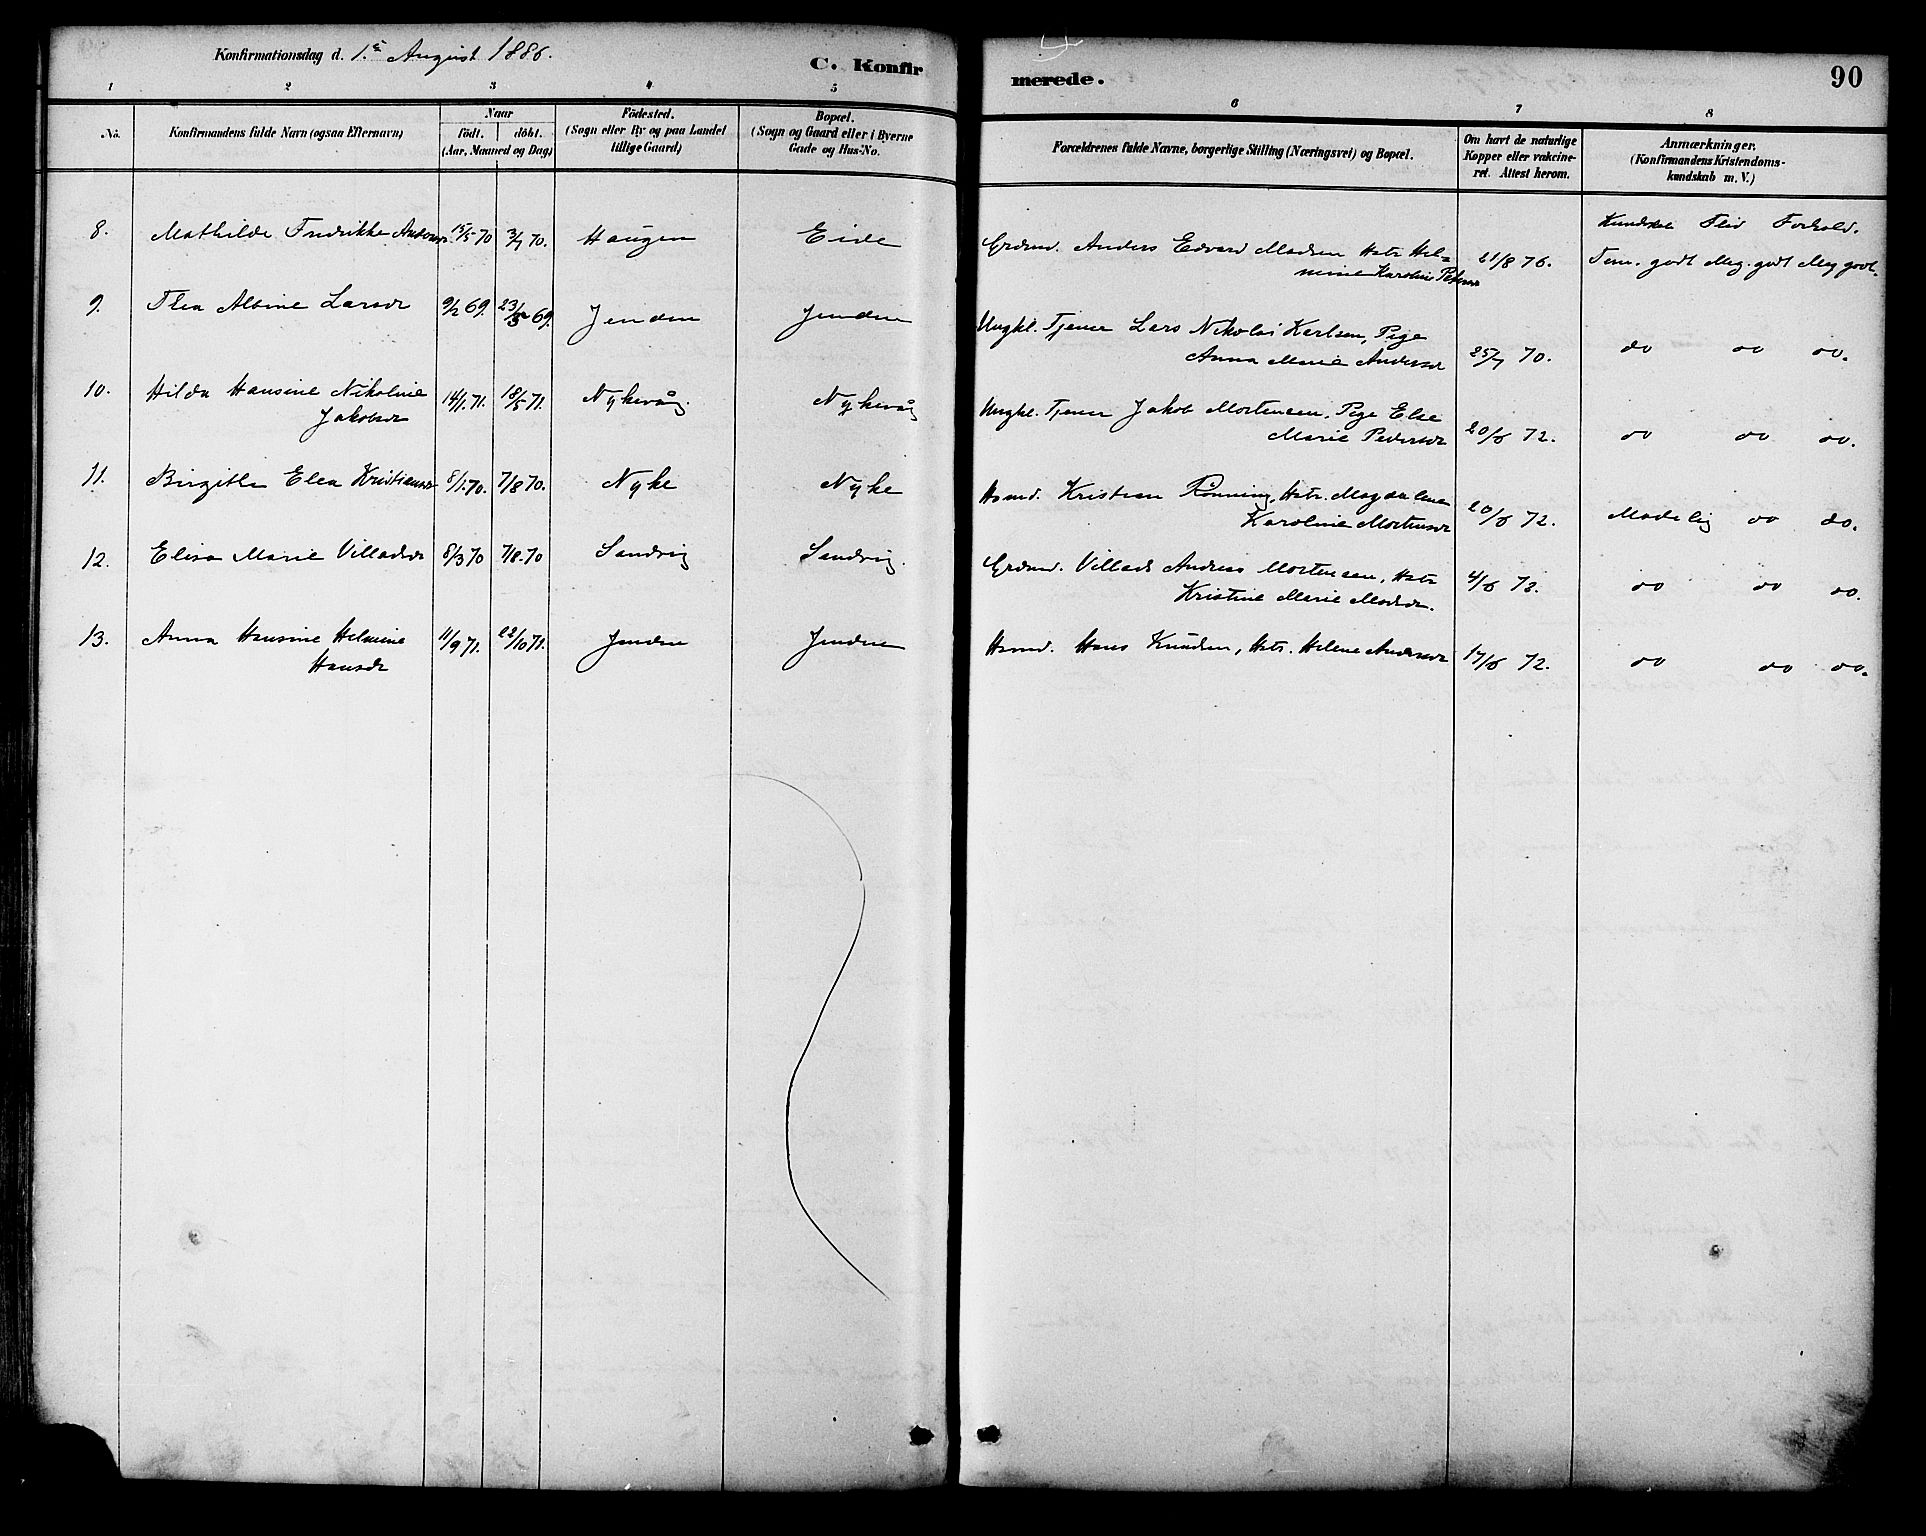 Konfirmationsdag d. 1.ste August 1886.
C. Konfir
merede.
90
1 2 3 4 5 6 7 8
No. Konfirmandens fulde Navn (ogsaa Efternavn) Naar födt. döbt. (Aar, Maaned og Dag)
Födested. (Sogn eller By og paa Landet tillige Gaard)
Bopæl. (Sogn og Gaard eller i Byerne Gade og Hus-No.
Forældrenes fulde Navne, borgerlige Stilling (Næringsvei) og Bopæl.
Om havt de naturlige Kopper eller vakcineret. Attest herom.
Anmærkninger. (Konfirmandens Kristendomskundskab m. V.)
Kundskab Flid Forhold.
8. Mathilde Fredrikke Andersdr 15/5 70 3/7 70. Haugen Eide Grdmd. Anders Edvard Madsen Hstr Hel=
mine Karoline Pedersdr 21/8 76. Tem. godt Meg. godt Meg godt.
9. Thea Albine Larsdr 9/2 69. 23/5 69. Jenden Jenden Ungkl. Tjener Lars Nikolai Karlsen, Pige
Anna Marie Andersdr 25/7 70. do do do.
10. Hilda Hansine Nikoline 14/1 71. 18/5 71. Nykevåg Nykevåg Ungkl. Tjener Jakob Mortensen, Pige Else
Jakobsdr Marie Pedersdr 20/6 72. do do do.
11. Birgitte Elea Kristiansdr 8/1 70. 7/8 70. Nyke Nyke Hsmd. Kristian Rönning, Hstr. Magdalena
Karoline Mortensdr 20/6 72. Madelig do do.
12. Elisa Marie Villadsdr 8/3 70 7/8-70 Sandvig Sandvig. Grdmd. Villads Andreas Mortensen, Hstr
Kristine Marie Madsdr. 4/6 72. do do do.
13. Anna Hansine Helmine 11/9 71. 22/10 71. Jenden Jenden Hsmd. Hans Knudsen, Hstr. Helene Andersdr 17/6 72. do do do.
Hansdr